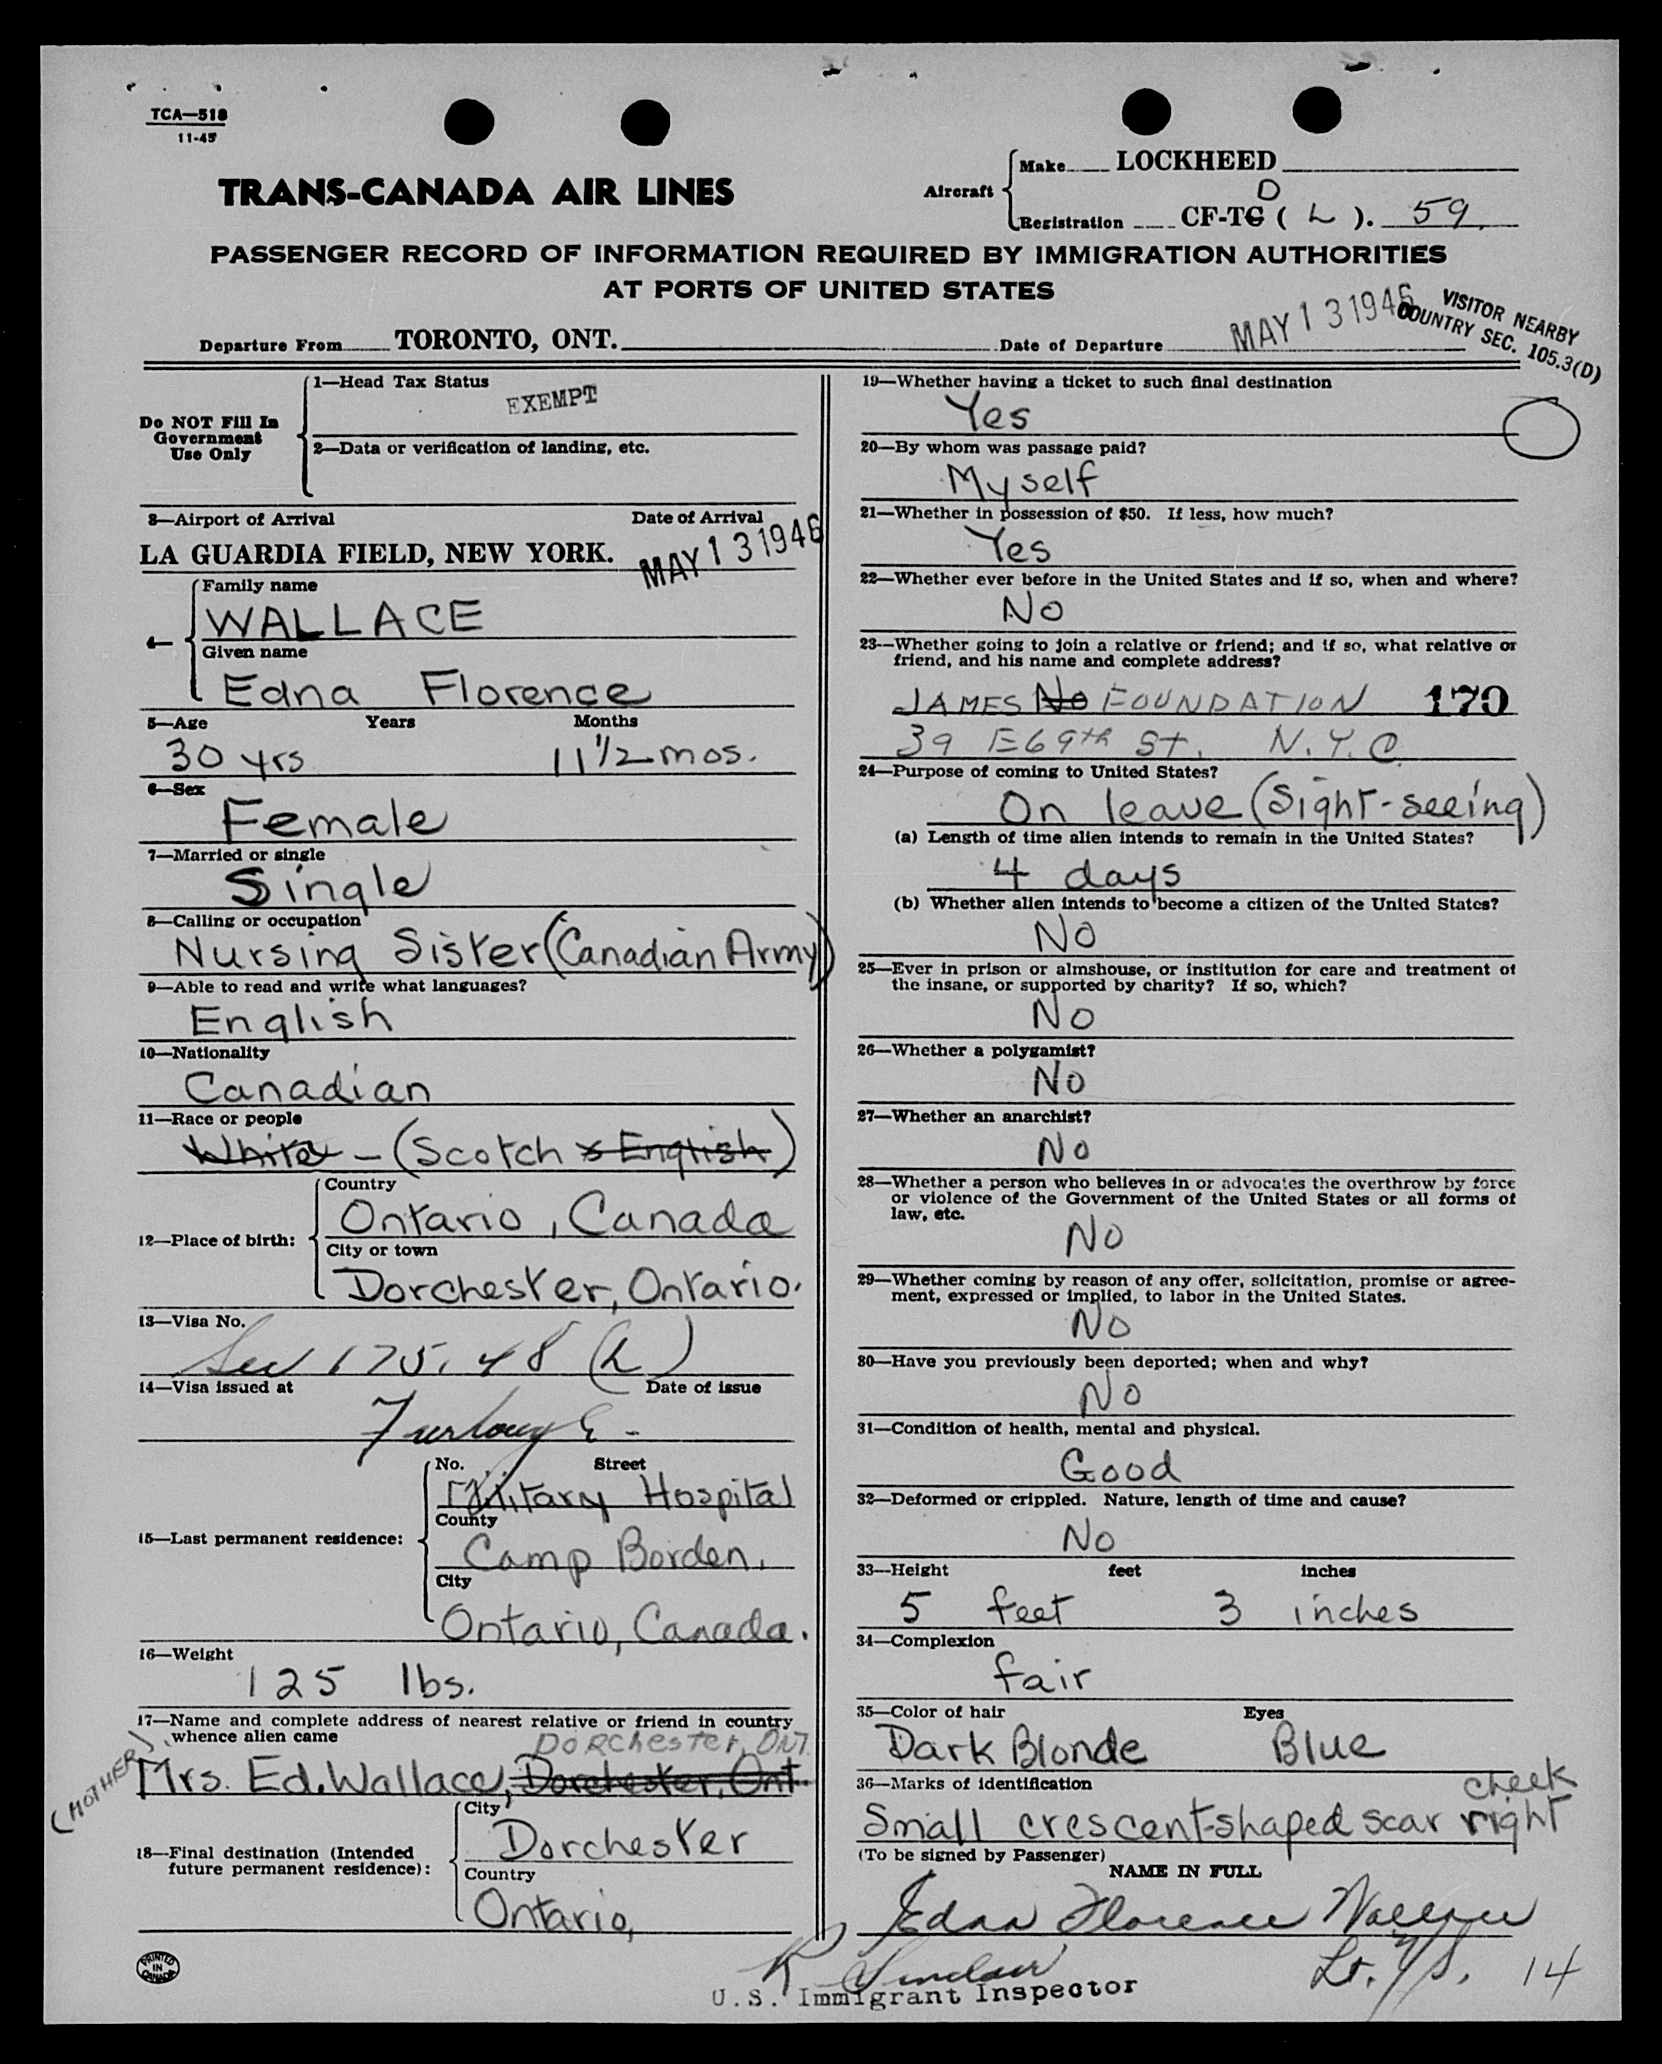 TCA—518
11-45
TRANS-CANADA AIR LINES
Aircraft
Make LOCKHEED
D
Registration CF-TG ( L ). 59
PASSENGER RECORD OF INFORMATION REQUIRED BY IMMIGRATION AUTHORITIES
AT PORTS OF UNITED STATES
Departure From TORONTO, ONT.
Date of Departure MAY 13 1946
VISITOR NEARBY
COUNTRY SEC. 105.3(D)
Do NOT Fill In
Government
Use Only
1—Head Tax Status
EXEMPT
2—Data or verification of landing, etc.
3—Airport of Arrival Date of Arrival
LA GUARDIA FIELD, NEW YORK. MAY 13 1946
4—
Family name
WALLACE
Given name
Edna Florence
5—Age Years Months
30 yrs 11 1/2 mos.
6—Sex
Female
7—Married or single
Single
8—Calling or occupation
Nursing Sister (Canadian Army)
9—Able to read and write what languages?
English
10—Nationality
Canadian
11—Race or people
White – (Scotch & English)
12—Place of birth:
Country
Ontario, Canada
City or town
Dorchester, Ontario.
13—Visa No.
Sec 175.48 (L)
14—Visa issued at Date of issue
Furlough -
15—Last permanent residence:
No. Street
Military Hospital
County
Camp Borden,
City
Ontario, Canada.
16—Weight
125 lbs.
17—Name and complete address of nearest relative or friend in country
whence alien came
Dorchester, Ont
(MOTHER)
Mrs. Ed. Wallace, Dorchester, Ont.
18—Final destination (Intended
future permanent residence):
City
Dorchester
Country
Ontario,
PRINTED
IN
CANADA
19—Whether having a ticket to such final destination
Yes
20—By whom was passage paid?
Myself
21—Whether in possession of $50. If less, how much?
Yes
22—Whether ever before in the United States and if so, when and where?
No
23—Whether going to join a relative or friend; and if so, what relative or
friend, and his name and complete address?
JAMES No FOUNDATION 170
39 E 69th St. N.Y.C
24—Purpose of coming to United States?
On leave (Sight-seeing)
(a) Length of time alien intends to remain in the United States?
4 days
(b) Whether alien intends to become a citizen of the United States?
No
25—Ever in prison or almshouse, or institution for care and treatment of
the insane, or supported by charity? If so, which?
No
26—Whether a polygamist?
No
27—Whether an anarchist?
No
28—Whether a person who believes in or advocates the overthrow by force
or violence of the Government of the United States or all forms of
law, etc.
No
29—Whether coming by reason of any offer, solicitation, promise or agree-
ment, expressed or implied, to labor in the United States.
No
30—Have you previously been deported; when and why?
No
31—Condition of health, mental and physical.
Good
32—Deformed or crippled. Nature, length of time and cause?
No
33—Height feet inches
5 feet 3 inches
34—Complexion
fair
35—Color of hair Eyes
Dark Blonde Blue
36—Marks of identification
cheek
Small crescent-shaped scar right
(To be signed by Passenger)
NAME IN FULL
Edna Florence Wallace
Lt. N/S. 14
K Sinclair
U.S. Immigrant Inspector